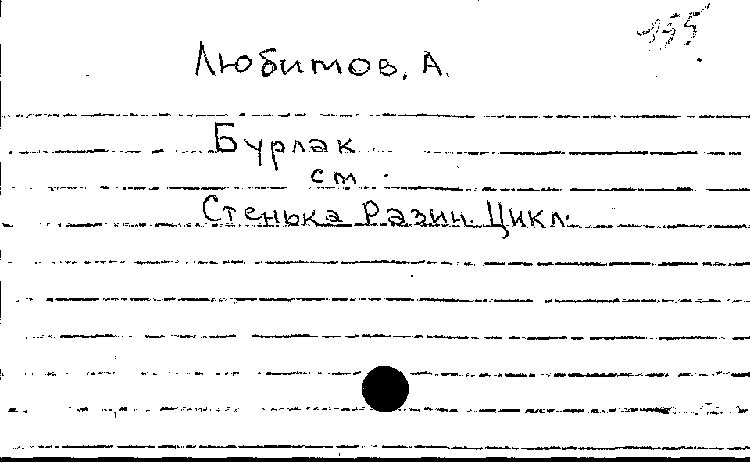 155
Любимов, А.
Бурлак
см.
Стенька Разин. Цикл.